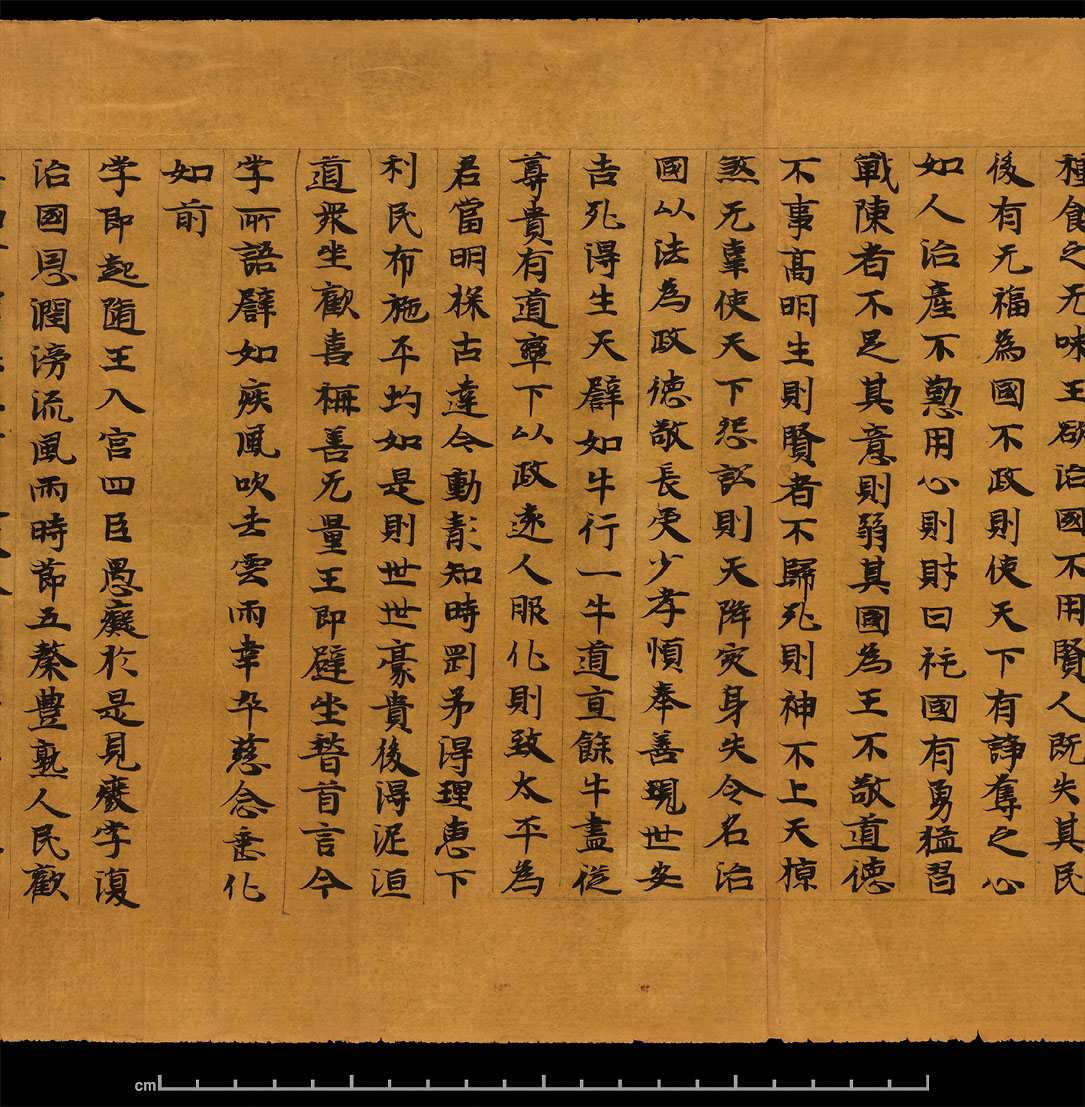 種食之无味王欲治國不用賢人既失其民
後有无福為國不政則使天下有諍奪之心
如人治產不懃用心則財日秏國有勇猛習
戰陳者不足其意則弱其國為王不敬道德
不事髙明生則賢者不歸死則神不上天椋
煞无辜使天下怨訟則天降灾身失令名治
國以法為政德敬長更少孝慎奉善現世安
吉死得生天譬如牛行一牛道亘餘牛盡從
尊貴有道率下以政遠人服化則致太平為
君當明探古達今動靜知時罡柔得理惠下
利民布施平均如是則世世豪貴後得泥洹
道衆坐歡喜稱善无量王即避坐稽首言今
孛所語譬如疾風吹去雲雨幸卒慈念垂化
如前
孛即起隨王入宮四臣愚癡於是見廢孛復
治國恩潤滂流風雨時節五穀豊熟人民歡
cm